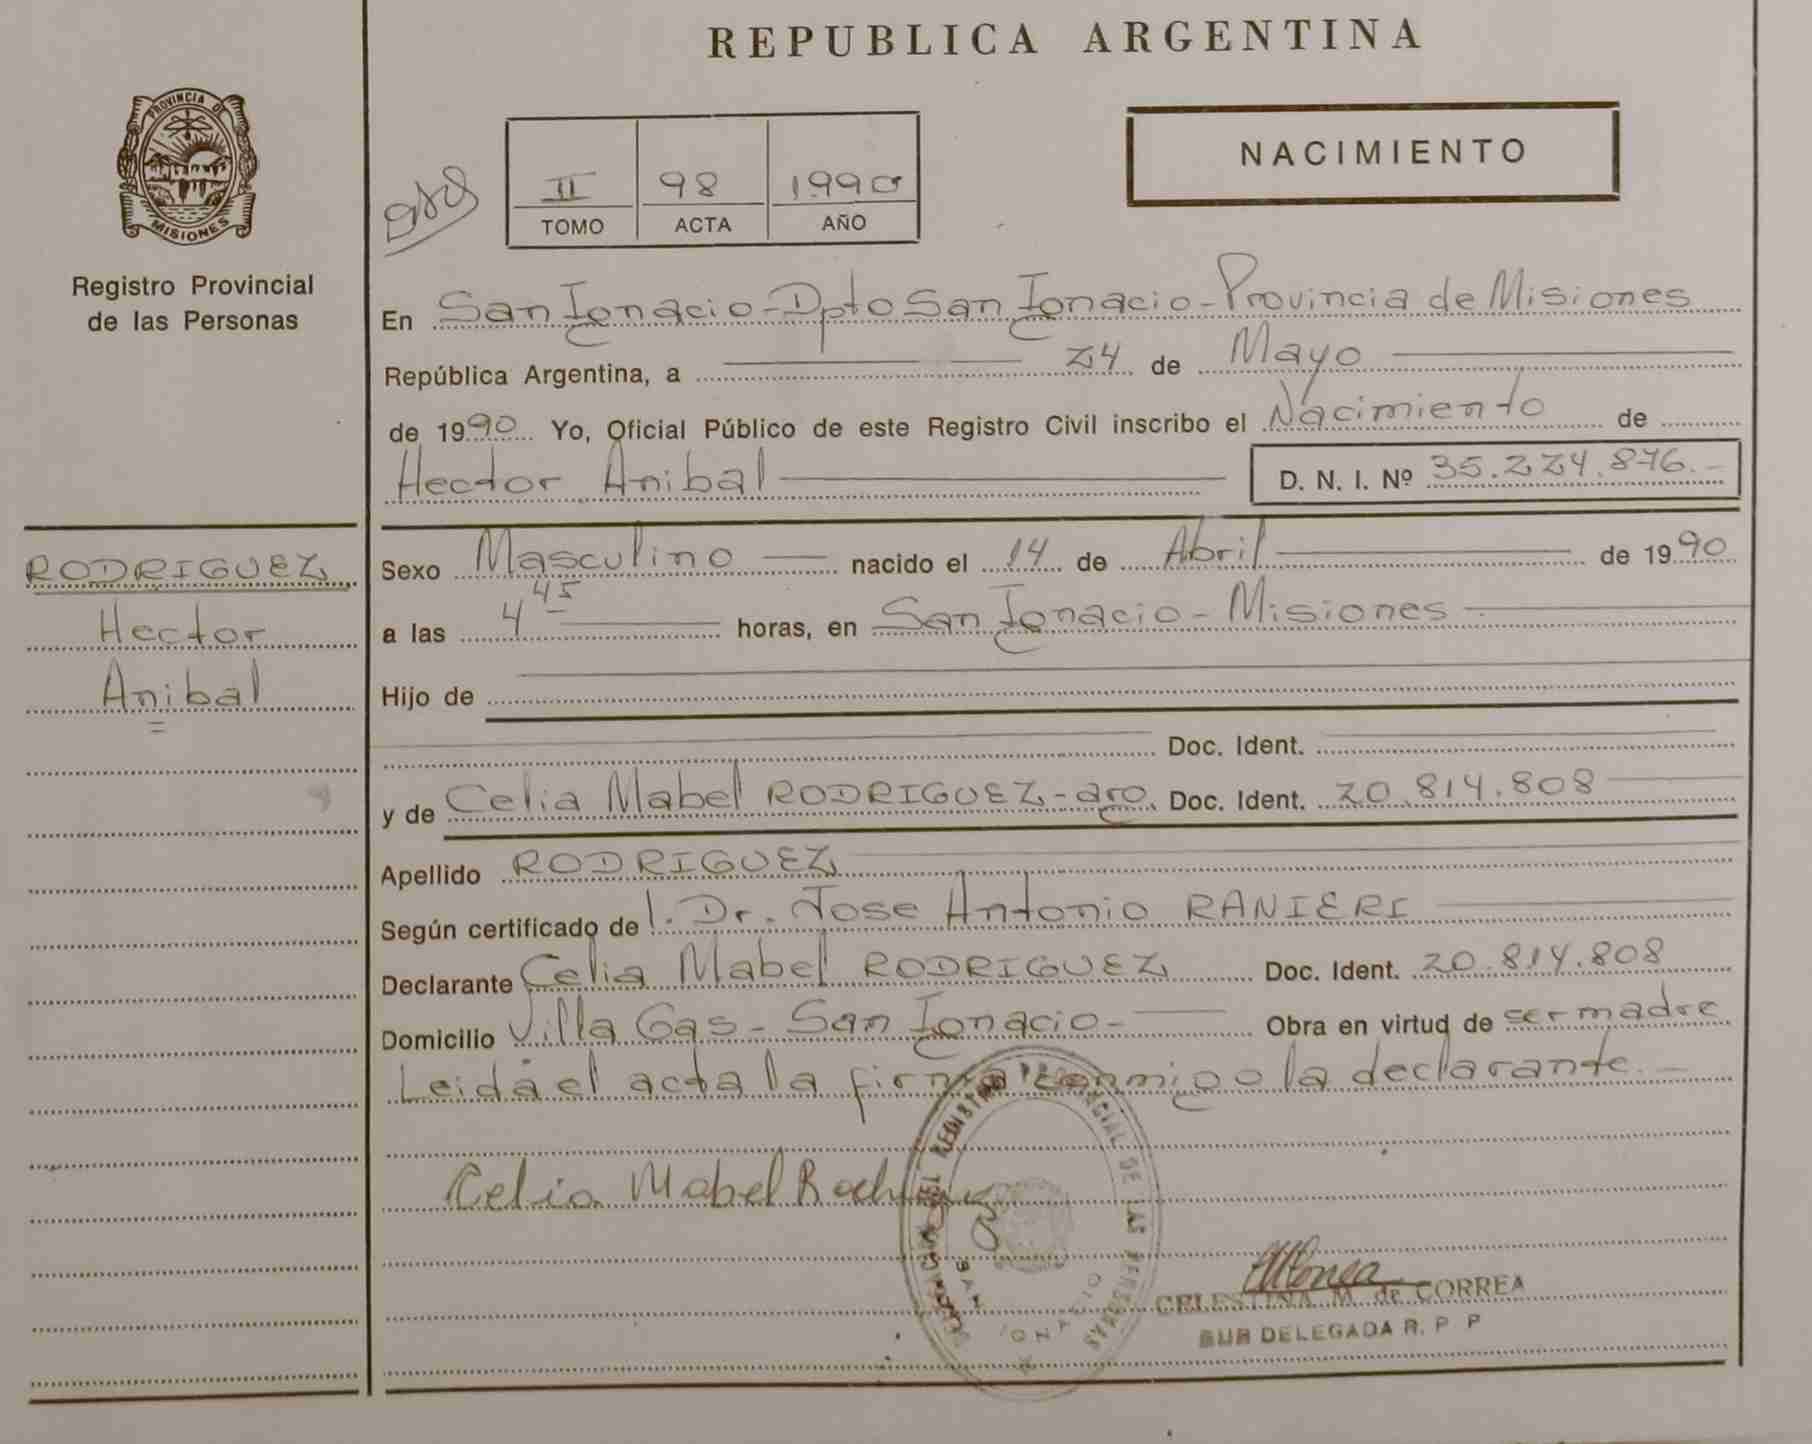 REPUBLICA ARGENTINA
PROVINCIA DE
MISIONES
Registro Provincial
de las Personas
II 98 1990
TOMO ACTA AÑO
NACIMIENTO
En San Ignacio - Dpto San Ignacio - Provincia de Misiones
República Argentina, a 24 de Mayo
de 1990 Yo, Oficial Público de este Registro Civil inscribo el Nacimiento de
Hector Anibal D. N. I. Nº 35.224.876.-
RODRIGUEZ
Hector
Anibal
Sexo Masculino nacido el 14 de Abril de 1990
a las 4 45 horas, en San Ignacio - Misiones
Hijo de
Doc. Ident.
y de Celia Mabel RODRIGUEZ - arg. Doc. Ident. 20.814.808
Apellido RODRIGUEZ
Según certificado de l. Dr. Jose Antonio RANIERI
Declarante Celia Mabel RODRIGUEZ Doc. Ident. 20.814.808
Domicilio Villa Gas - San Ignacio - Obra en virtud de ser madre
Leida el acta la firma conmigo la declarante.-
Celia Mabel Rodriguez
DEL REGISTRO PROVINCIAL DE LAS PERSONAS
SAN IGNACIO
CELESTINA M. de CORREA
SUB DELEGADA R. P. P